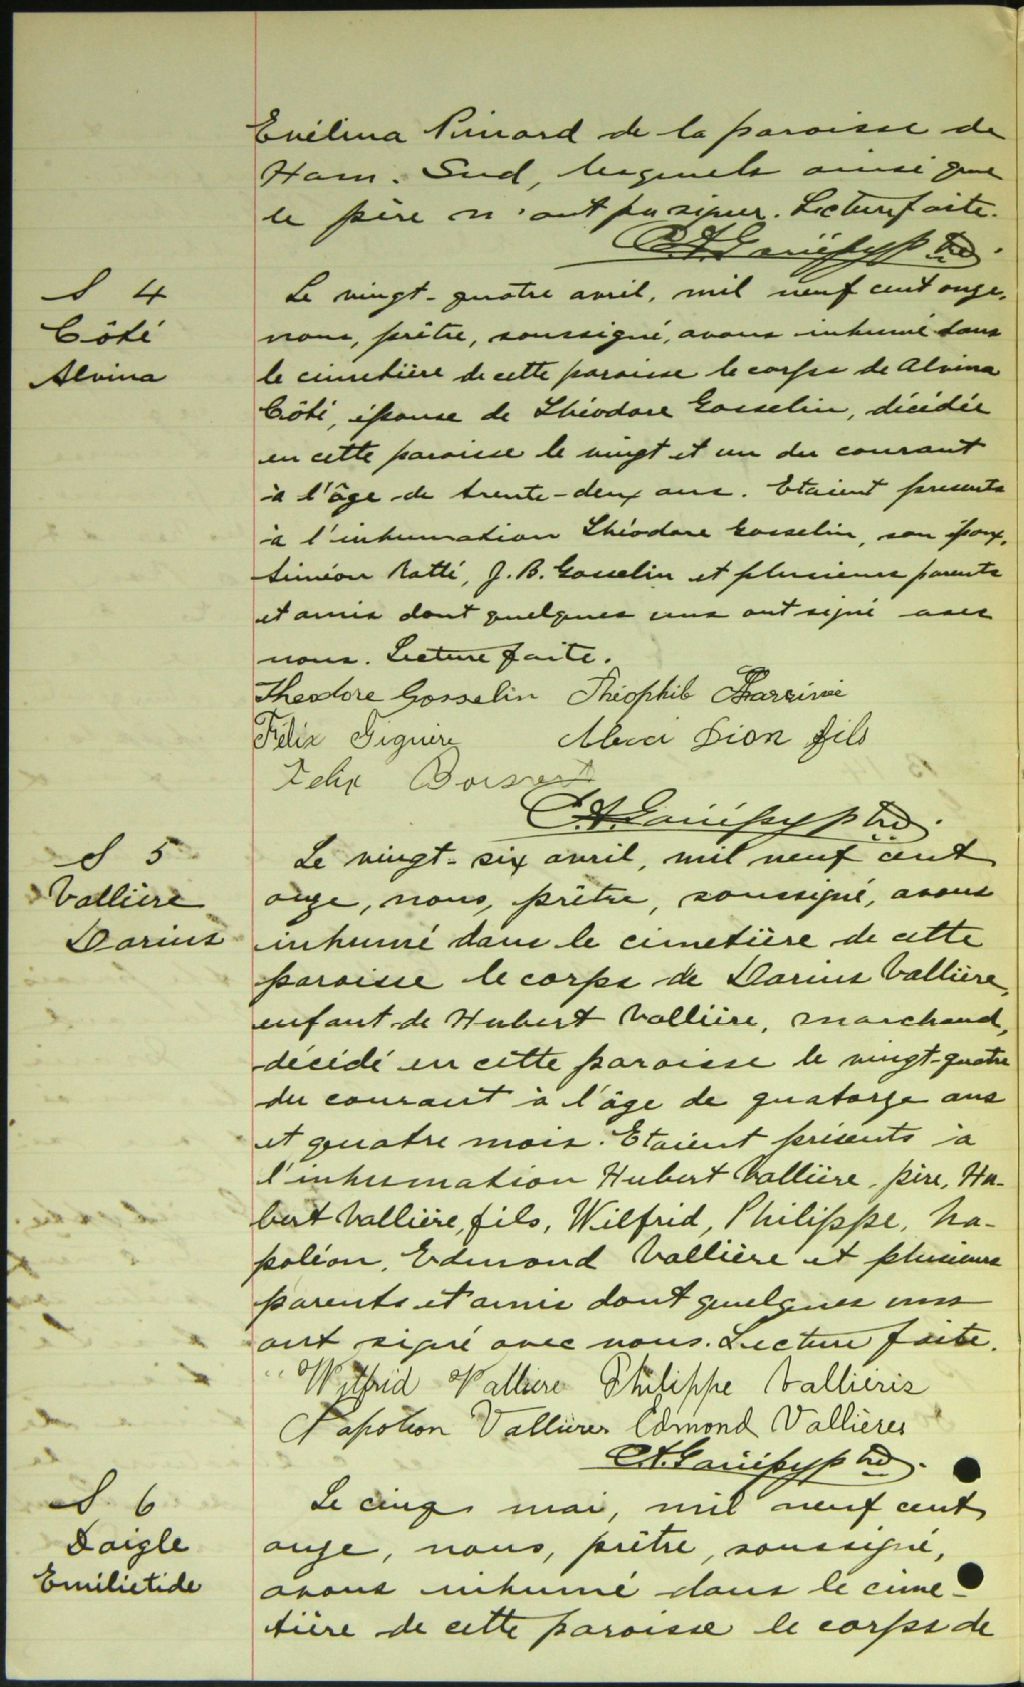 Evélina Pinard de la paroisse de
Ham-Sud, lesquels ainsi que
le père n'ont pu signer. Lecture faite.
C.A. Gariépy ptre.
S 4
Côté
Alvina
Le vingt-quatre avril, mil neuf cent onze,
nous, prêtre, soussigné, avons inhumé dans
le cimetière de cette paroisse le corps de Alvina
Côté, épouse de Théodore Gosselin, décédée
en cette paroisse le vingt et un du courant
à l'âge de trente-deux ans. Etaient présents
à l'inhumation Théodore Gosselin, son époux,
Siméon Ratté, J. B. Gosselin et plusieurs parents
et amis dont quelques uns ont signé avec
nous. Lecture faite.
Theodore Gosselin Théophile
Félix Giguère Dion fils
Felix Boisvert
C.A. Gariépy ptre.
S 5
Vallière
Darius
Le vingt-six avril, mil neuf cent
onze, nous, prêtre, soussigné, avons
inhumé dans le cimetière de cette
paroisse le corps de Darius Vallière,
enfant de Hubert Vallière, marchand,
décédé en cette paroisse le vingt-quatre
du courant à l'âge de quatorze ans
et quatre mois. Etaient présents à
l'inhumation Hubert Vallière, père, Hu-
bert Vallière, fils, Wilfrid, Philippe, Na-
poléon, Edmond Vallière et plusieurs
parents et amis dont quelques uns
ont signé avec nous. Lecture faite.
Wilfrid Valliere Philippe Vallièris
Napoleon Vallières Edmond Vallières
C.A. Gariépy ptre.
S. 6
Daigle
Emilietide
Le cinq mai, mil neuf cent
onze, nous, prêtre, soussigné,
avons inhumé dans le cime-
tière de cette paroisse le corps de